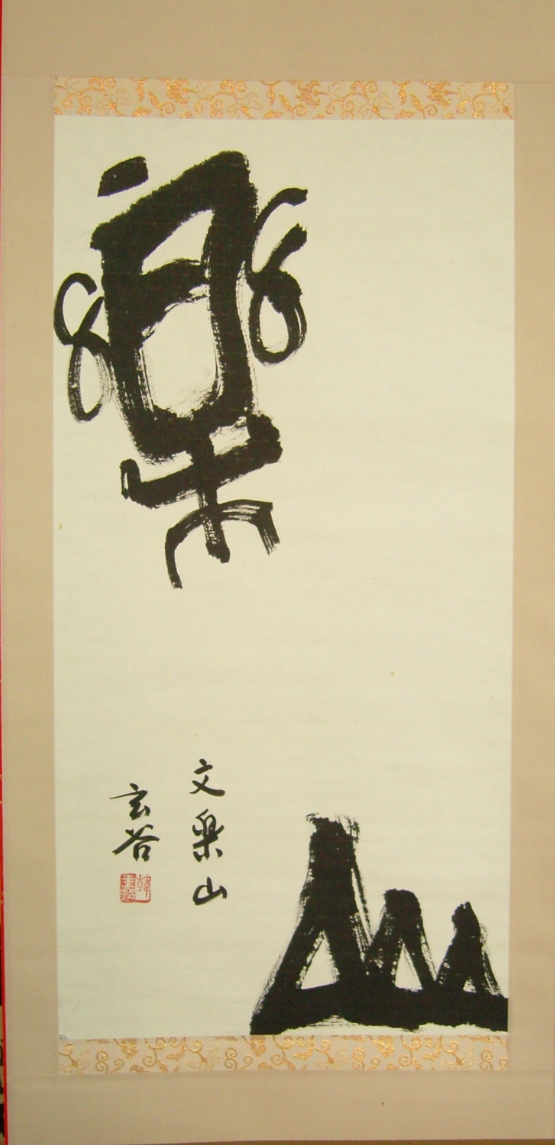 樂
山
文樂山
玄谷